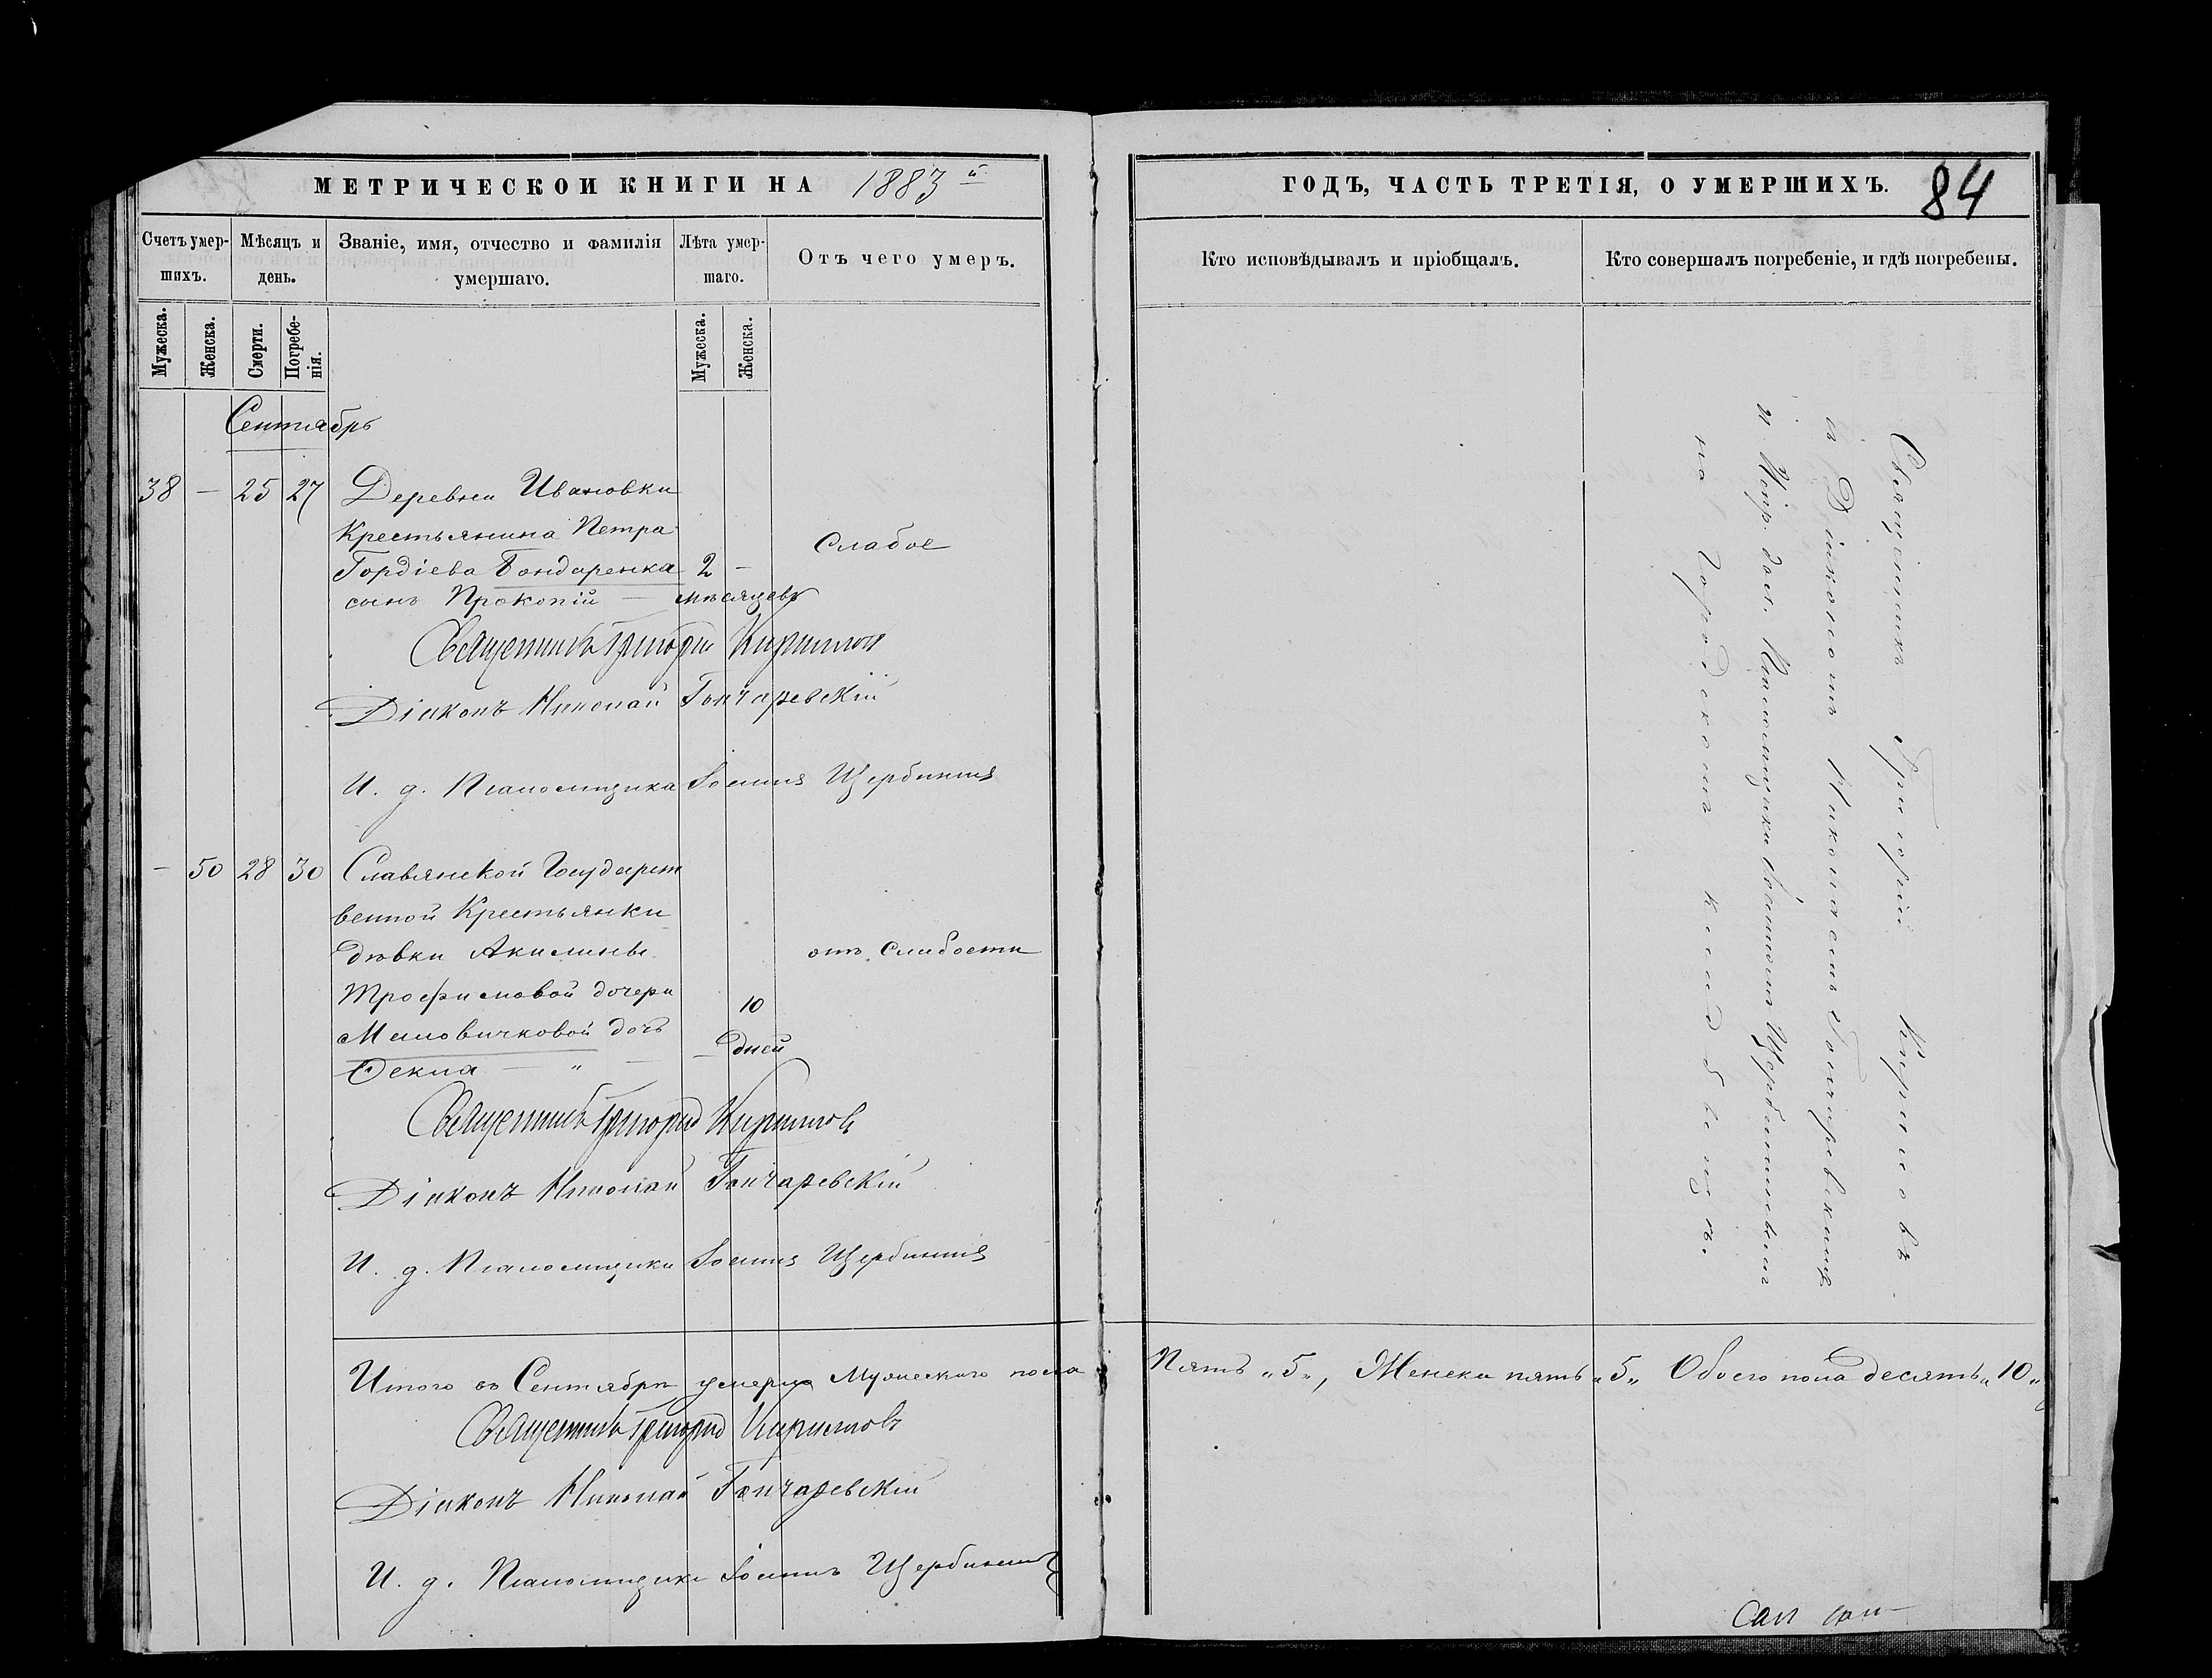 МЕТРИЧЕСКОЙ КНИГИ НА 1883й
Счетъ умер-
шихъ.
Мѣсяцъ и
день.
Званіе, имя, отчество и фамилія
умершаго.
Лѣта умер-
шаго.
Отъ чего умеръ.
Мужеска.
Женска.
Смерти.
Погребе-
нія.
Мужеска.
Женска.
Сентябрь
38 — 25 27 Деревни Ивановки
Крестьянина Петра
Слабое
Гордіева Бондаренка 2 —
сынъ Прокопій — мѣсяцевъ
Священникъ Григорій Кириловъ
Діаконъ Николай Гончаревскій
И. д. Псаломщика Іоаннъ Щербининъ
— 50 28 30 Славянской Государст
венной Крестьянки
дѣвки Акилины отъ слабости
Трофимовой дочери 10
дочь
— дней
Ѳекла — „
Священникъ Григорій Кириловъ
Діаконъ Николай Гончаревскій
И. д. Псаломщика Іоаннъ Щербининъ
Итого въ Сентябрѣ умерло Мужескаго пола
Священникъ Григорій Кириловъ
Діаконъ Николай Гончаревскій
И. д. Псаломщика Іоаннъ Щербининъ
ГОДЪ, ЧАСТЬ ТРЕТІЯ, О УМЕРШИХЪ.
84
Кто исповѣдывалъ и пріобщалъ.
Кто совершалъ погребеніе, и гдѣ погребены.
Священникъ Григорій Кириловъ
съ Діакономъ Николаемъ Гончаревскимъ
и Испр. дол. Псаломщика Іоанномъ Щербининымъ
на городскомъ кладбищѣ.
Пять „5„, Женска пять „5„ Обоего пола десять „10„